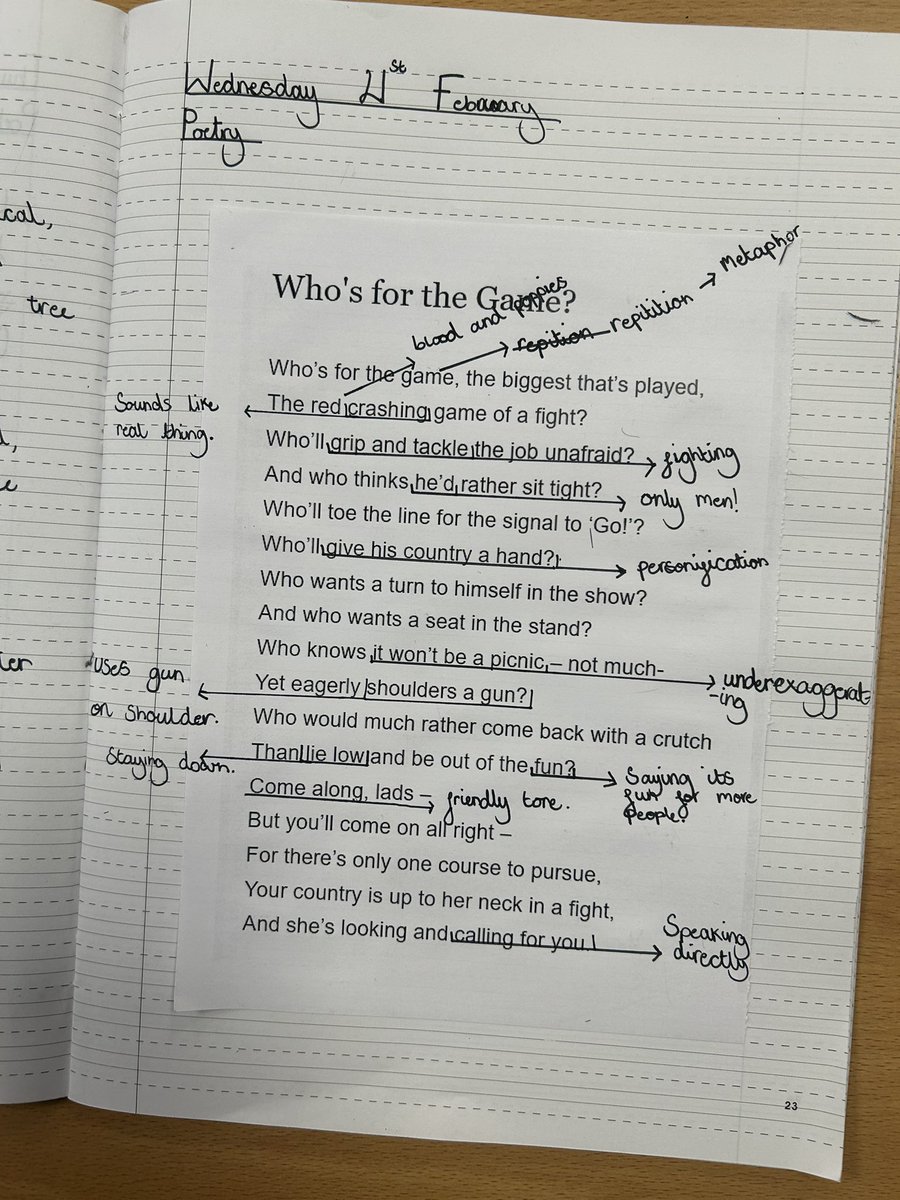 Wednesday 21st Febauary
Poetry
cal,
tree
Who's for the Game?
blood and poppies
repition repitition → metaphor
Who's for the game, the biggest that's played,
The red crashing game of a fight?
Sounds like
real thing.
Who'll grip and tackle the job unafraid?
fighting
And who thinks he'd rather sit tight?
only men!
Who'll toe the line for the signal to 'Go!'?
Who'll give his country a hand?
personification
Who wants a turn to himself in the show?
And who wants a seat in the stand?
Who knows it won't be a picnic – not much-
underexaggerat-
-ing
Yet eagerly shoulders a gun?
uses gun
on shoulder.
Who would much rather come back with a crutch
Than lie low and be out of the fun?
Staying down.
Saying its
fun for more
people!
Come along, lads –
friendly tone.
But you'll come on all right –
For there's only one course to pursue,
Your country is up to her neck in a fight,
And she's looking and calling for you!
Speaking
directly
23